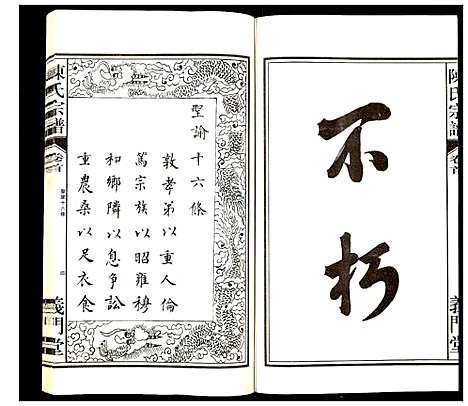 陳氏宗譜
卷首
義門堂
不朽
聖諭十六條
敦孝弟以重人倫
篤宗族以昭雍穆
和鄉隣以息争訟
重農桑以足衣食
陳氏宗譜
卷首
聖諭十六條
義門堂